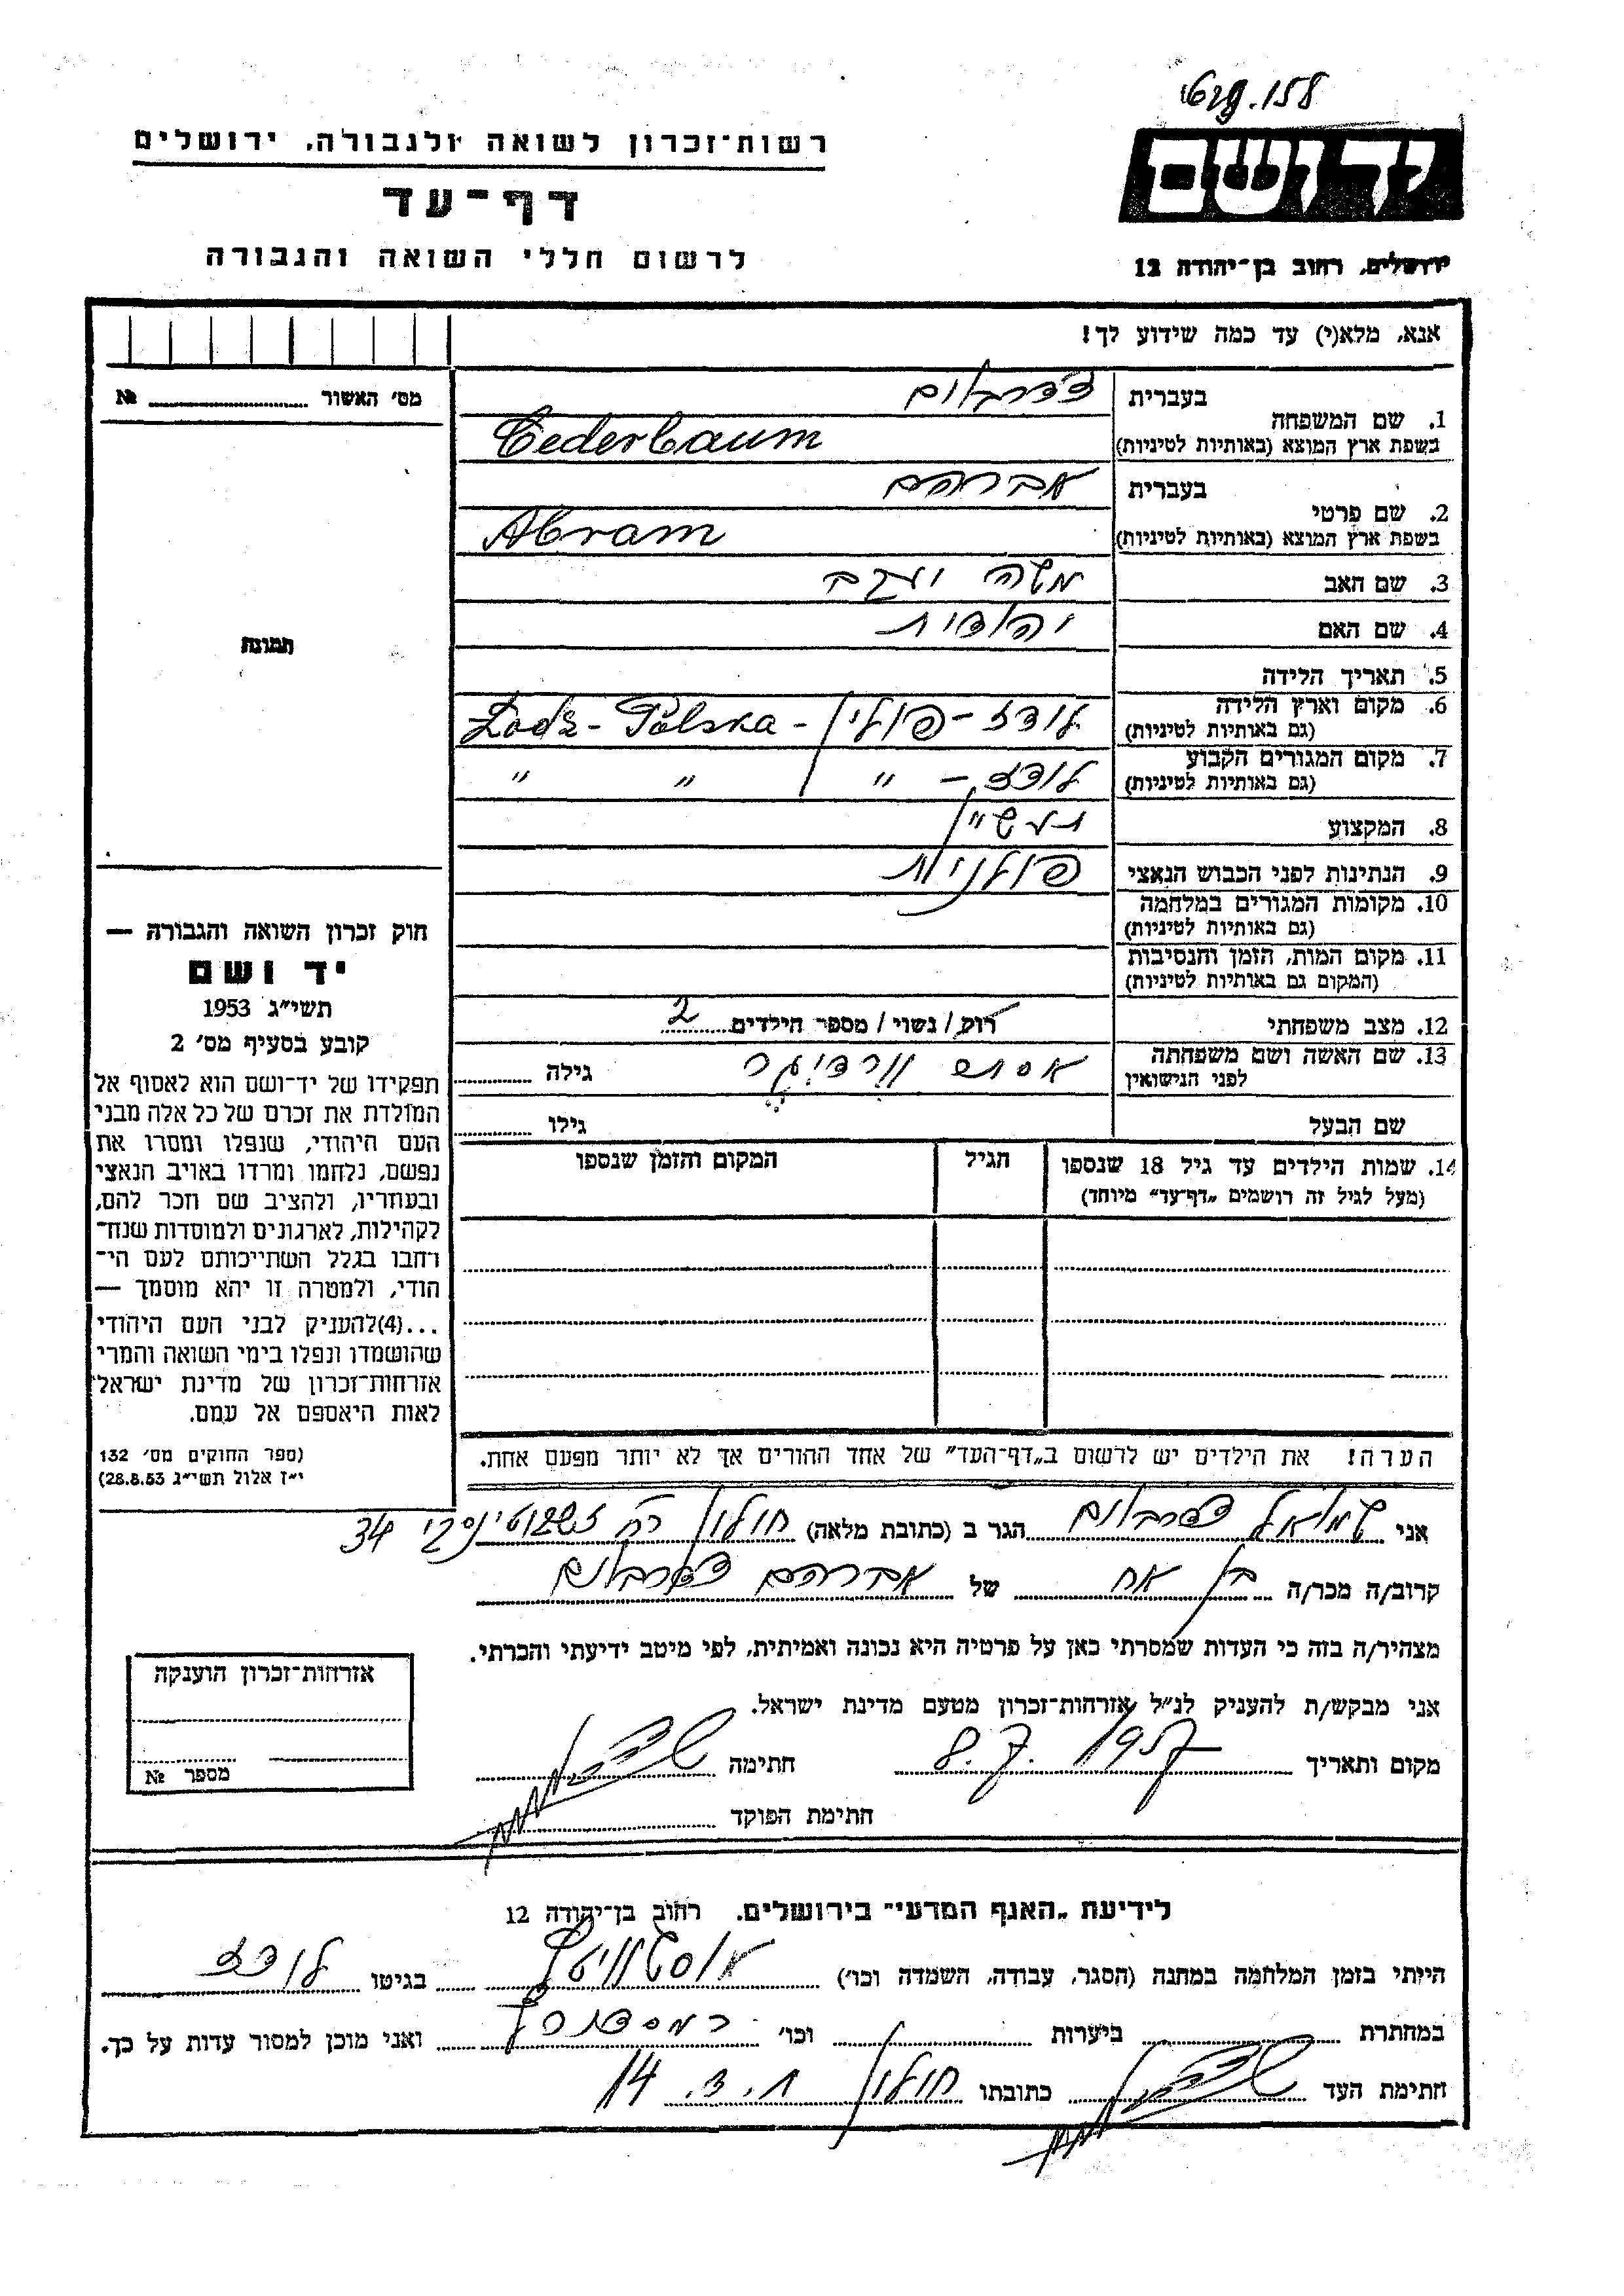 רשות־זכרון לשואה ולגבורה. ירושלים
דף־עד
לרשום חללי השואה והגבורה
ידושם
ירושלים, רחוב בן־יהודה 12
אנא, מלא(י) עד כמה שידוע לך!
מס׳ האשור № ........
1. שם המשפחה
בעברית צדרבוים
בשפת ארץ המוצא (באותיות לטיניות) Cederbaum
2. שם פרטי
בעברית אברהם
בשפת ארץ המוצא (באותיות לטיניות) Abram
3. שם האב משה יעקב
4. שם האם יהודית
5. תאריך הלידה
6. מקום וארץ הלידה לודז - פולין - Lodz - Polska
(גם באותיות לטיניות)
7. מקום המגורים הקבוע לודז - " " "
(גם באותיות לטיניות)
8. המקצוע
9. הנתינות לפני הכבוש הנאצי פולנית
10. מקומות המגורים במלחמה
(גם באותיות לטיניות)
11. מקום המות, הזמן והנסיבות
(המקום גם באותיות לטיניות)
12. מצב משפחתי רווק/נשוי/מספר הילדים 2
13. שם האשה ושם משפחתה אסתר גילה ........
לפני הנישואין
שם הבעל גילו ........
14. שמות הילדים עד גיל 18 שנספו הגיל המקום והזמן שנספו
(מעל לגיל זה רושמים „דף־עד״ מיוחד)
הערה! את הילדים יש לרשום ב„דף־העד״ של אחד ההורים אך לא יותר מפעם אחת.
תמונה
חוק זכרון השואה והגבורה —
יד ושם
תשי״ג 1953
קובע בסעיף מס׳ 2
תפקידו של יד־ושם הוא לאסוף אל
המולדת את זכרם של כל אלה מבני
העם היהודי, שנפלו ומסרו את
נפשם, נלחמו ומרדו באויב הנאצי
ובעוזריו, ולהציב שם וזכר להם,
לקהילות, לארגונים ולמוסדות שנח־
רבו בגלל השתייכותם לעם הי־
הודי, ולמטרה זו יהא מוסמך —
...(4)להעניק לבני העם היהודי
שהושמדו ונפלו בימי השואה והמרי
אזרחות־זכרון של מדינת ישראל
לאות היאספם אל עמם.
(ספר החוקים מס׳ 132
י״ז אלול תשי״ג 28.8.53)
אני שמואל צדרבוים הגר ב (כתובת מלאה) חולון רח ז׳בוטינסקי 34
קרוב/ה מכר/ה בן אח של אברהם צדרבוים
מצהיר/ה בזה כי העדות שמסרתי כאן על פרטיה היא נכונה ואמיתית, לפי מיטב ידיעתי והכרתי.
אני מבקש/ת להעניק לנ״ל אזרחות־זכרון מטעם מדינת ישראל.
מקום ותאריך 8.7.1957 חתימה
חתימת הפוקד
אזרחות־זכרון הוענקה
מספר №
לידיעת „האגף המדעי״ בירושלים. רחוב בן־יהודה 12
הייתי בזמן המלחמה במחנה (הסגר, עבודה, השמדה וכו׳) בגיטו לודז
במחתרת ביערות וכו׳ ואני מוכן למסור עדות על כך.
חתימת העד כתובתו חולון ת.ד. 14